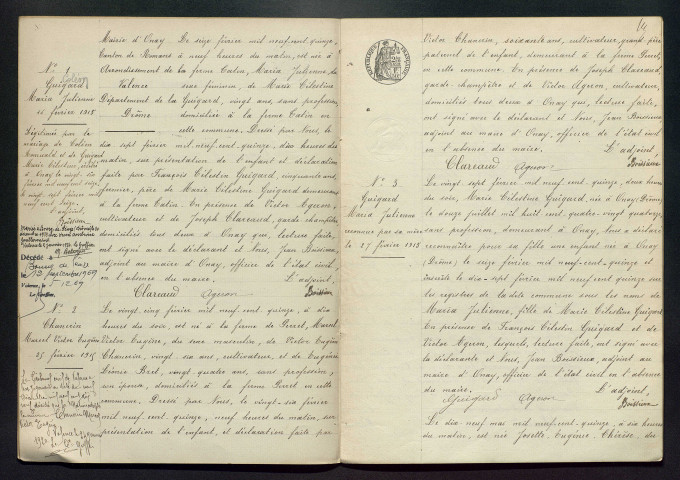 Mairie d'Onay
Canton de Romans
Arrondissement de
Valence
Département de la
Drôme
Nº 1
Guigard
Maria Julienne
16 février 1915
Légitimée par le
mariage de
Décédée
Nº 2
Chancrin
Marcel Victor Eugène
25 février 1915
Le seize février mil neuf cent quinze,
à neuf heures du matin, est née à
la ferme Catin, Maria Julienne, du
sexe féminin, de Marie Célestine
Guigard, vingt ans, sans profession,
domiciliée à la ferme Catin en
cette commune. Dressé par Nous, le
dix sept février mil neuf cent quinze, dix heures du
matin, sur présentation de l'enfant et déclaration
faite par François Célestin Guigard, cinquante ans,
fermier, père de Marie Célestine Guigard demeurant
à la ferme Catin. En présence de Victor Ageron,
cultivateur et de Joseph Clareaud, garde champêtre,
domiciliés tous deux à Onay qui, lecture faite,
ont signé avec le déclarant et Nous, Jean Boissieux,
adjoint au maire d'Onay, officier de l'état civil, en
l'absence du maire. L'adjoint,
Clareaud Ageron Boissieux
Le vingt cinq février mil neuf cent quinze, à dix
heures du soir, est né à la ferme de Perret, Marcel
Victor Eugène, du sexe masculin, de Victor Eugène
Chancrin, vingt six ans, cultivateur, et de Eugénie
vingt quatre ans, sans profession,
son épouse, domiciliés à la ferme Perret en cette
commune. Dressé par Nous, le vingt six février
mil neuf cent quinze, neuf heures du matin, sur
présentation de l'enfant, et déclaration faite par
RÉPUBLIQUE FRANÇAISE
Victor Chancrin, soixante ans, cultivateur, grand père
paternel de l'enfant, demeurant à la ferme Perret,
en cette commune. En présence de Joseph Clareaud,
garde champêtre et de Victor Ageron, cultivateur,
domiciliés tous deux à Onay qui, lecture faite,
ont signé avec le déclarant et Nous, Jean Boissieux
adjoint au maire d'Onay, officier de l'état civil
en l'absence du maire. L'adjoint,
Clareaud Ageron Boissieux
Nº 3
Guigard
Maria Julienne
reconnue par sa mère
le 27 février 1915
Le vingt sept février mil neuf cent quinze, deux heures
du soir, Marie Célestine Guigard, née à Onay (Drôme)
le douze juillet mil huit cent quatre-vingt quatorze,
sans profession, demeurant à Onay, Nous a déclaré
reconnaître pour sa fille une enfant née à Onay
(Drôme) le seize février mil neuf cent quinze et
inscrite le dix sept février mil neuf cent quinze sur
les registres de la dite commune sous les noms de
Maria Julienne, fille de Marie Célestine Guigard
En présence de François Célestin Guigard et de
Victor Ageron, lesquels, lecture faite, ont signé avec
la déclarante et Nous, Jean Boissieux, adjoint au
maire d'Onay, officier de l'état civil en l'absence
du maire. L'adjoint,
Guigard Ageron Boissieux
Le dix neuf mai mil neuf cent quinze, à six heures
du matin, est née Josette Eugénie Thérèse, du